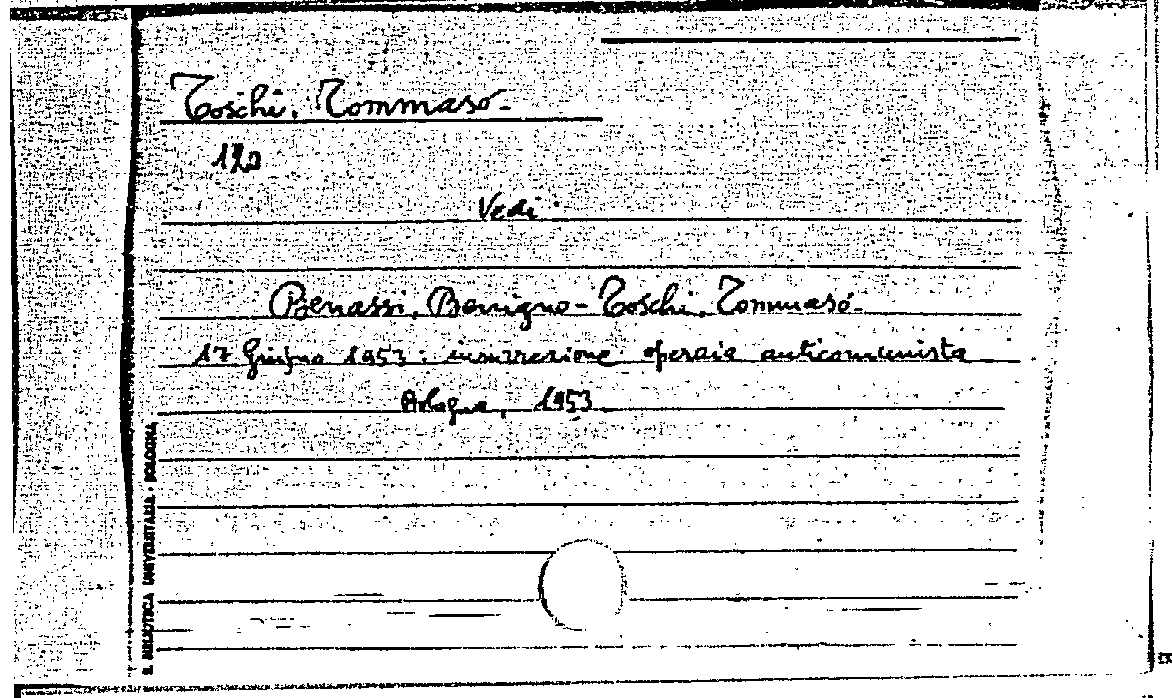 Toschi, Tommaso.
Vedi
Benassi, Benigno - Toschi, Tommaso.
17 Giugno 1953: insurrezione operaia anticomunista
Bologna, 1953.
B. BIBLIOTECA UNIVERSITARIA - BOLOGNA